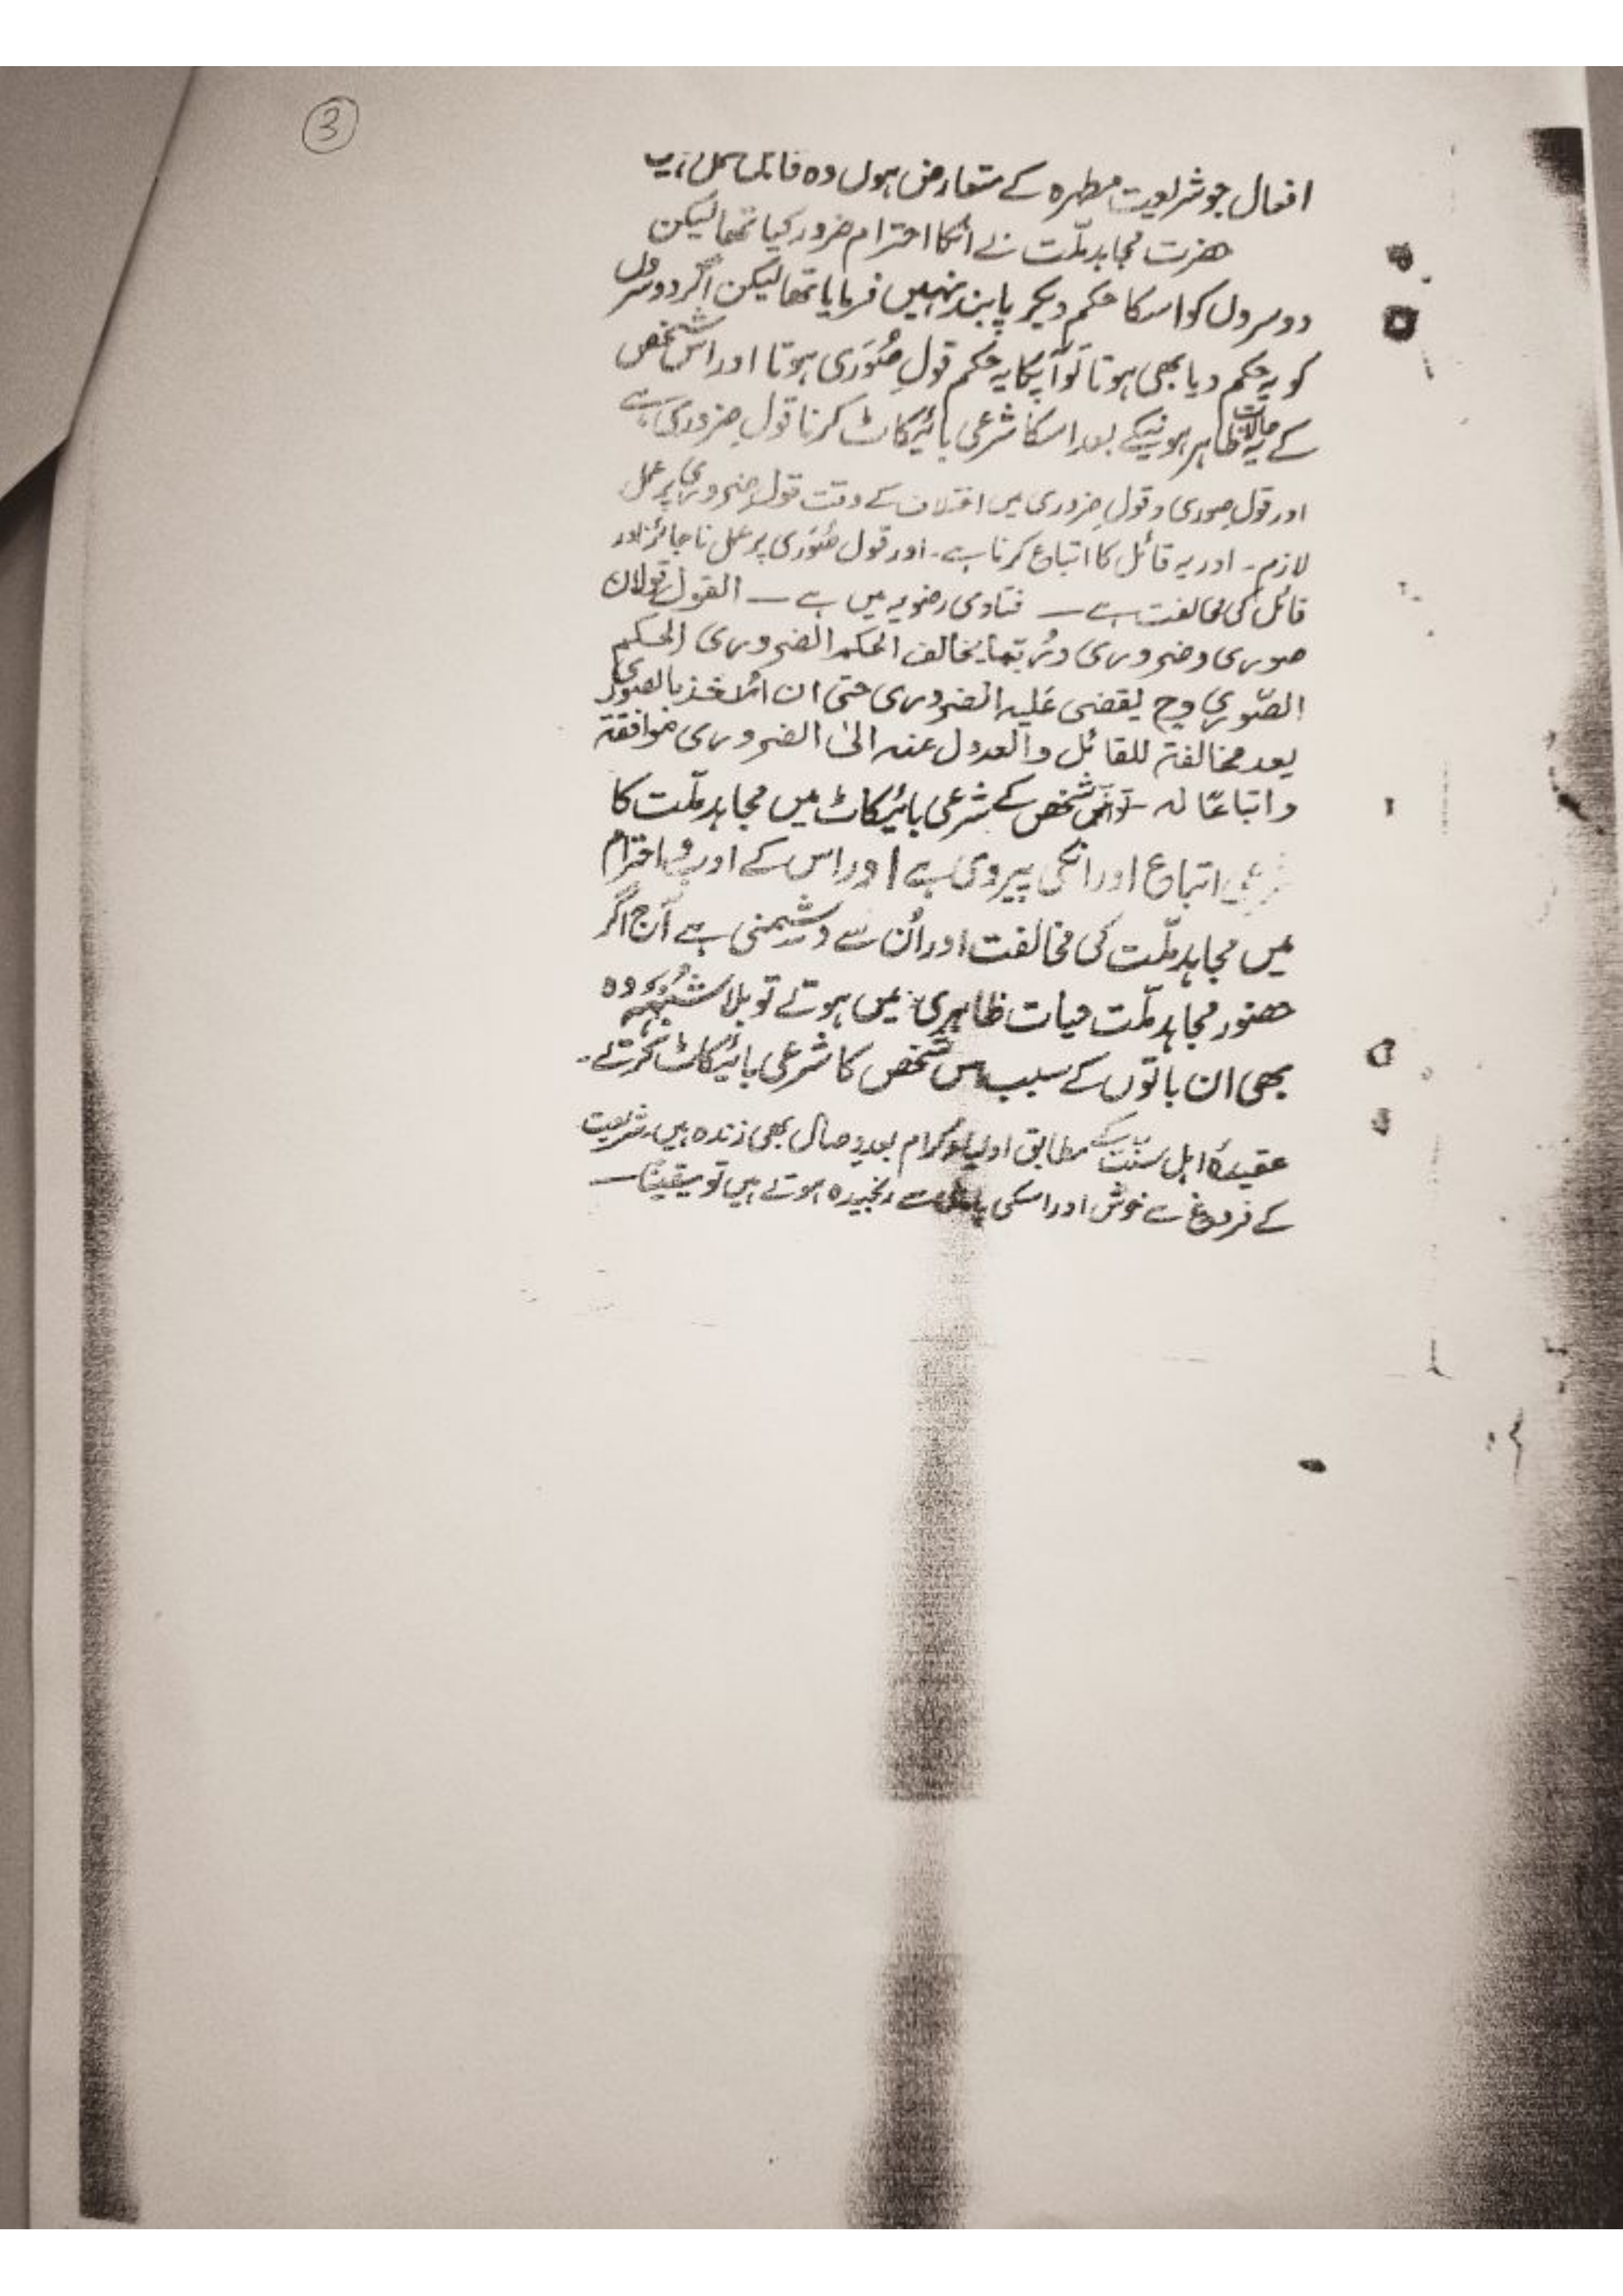 3
افعال جو شریعت مطہرہ کے متعارض ہوں وہ
حضرت مجاہد ملّت نے انکا احترام ضرور کیا تھا لیکن
دوسروں کو اسکا حکم دیکر پابند نہیں فرمایا تھا لیکن اگر دوسروں
کو یہ حکم دیا بھی ہوتا تو آپکا یہ حکم قولِ صُوَری ہوتا اور اس شخص
کے یہ حالات ظاہر ہونیکے بعد اسکا شرعی بائیکاٹ کرنا قولِ ضروری ہے
اور قولِ صوری و قولِ ضروری میں اختلاف کے وقت قولِ ضروری پر عمل
لازم ۔ اور یہ قائل کا اتباع کرنا ہے ۔ اور قول صُوَری پر عمل ناجائز اور
قائل کی مخالفت ہے — فتاوی رضویہ میں ہے — القول قولان
صوری و ضروری وربّما یخالف الحکم الضروری الحکم
الصّوری وح یقضی علیہ الضروری حتی ان الاخذ بالصوری
یعد مخالفۃ للقائل والعدول عنہ الیٰ الضروری موافقۃ
واتباعًا لہ - تو اس شخص کے شرعی بائیکاٹ میں مجاہد ملّت کا
اتباع اور انکی پیروی ہے اور اس کے ادب و احترام
میں مجاہد ملّت کی مخالفت اور اُن سے دشمنی ہے آج اگر
حضور مجاہد ملّت حیات ظاہری میں ہوتے تو بلا شُبہہ وہ
بھی ان باتوں کے سبب اس شخص کا شرعی بائیکاٹ کرتے ۔
عقیدۂ اہل سنّت کے مطابق اولیاء کرام بعدِ وصال بھی زندہ ہیں شریعت
کے فروغ سے خوش اور اسکی پامالی سے رنجیدہ ہوتے ہیں تو یقینًا —